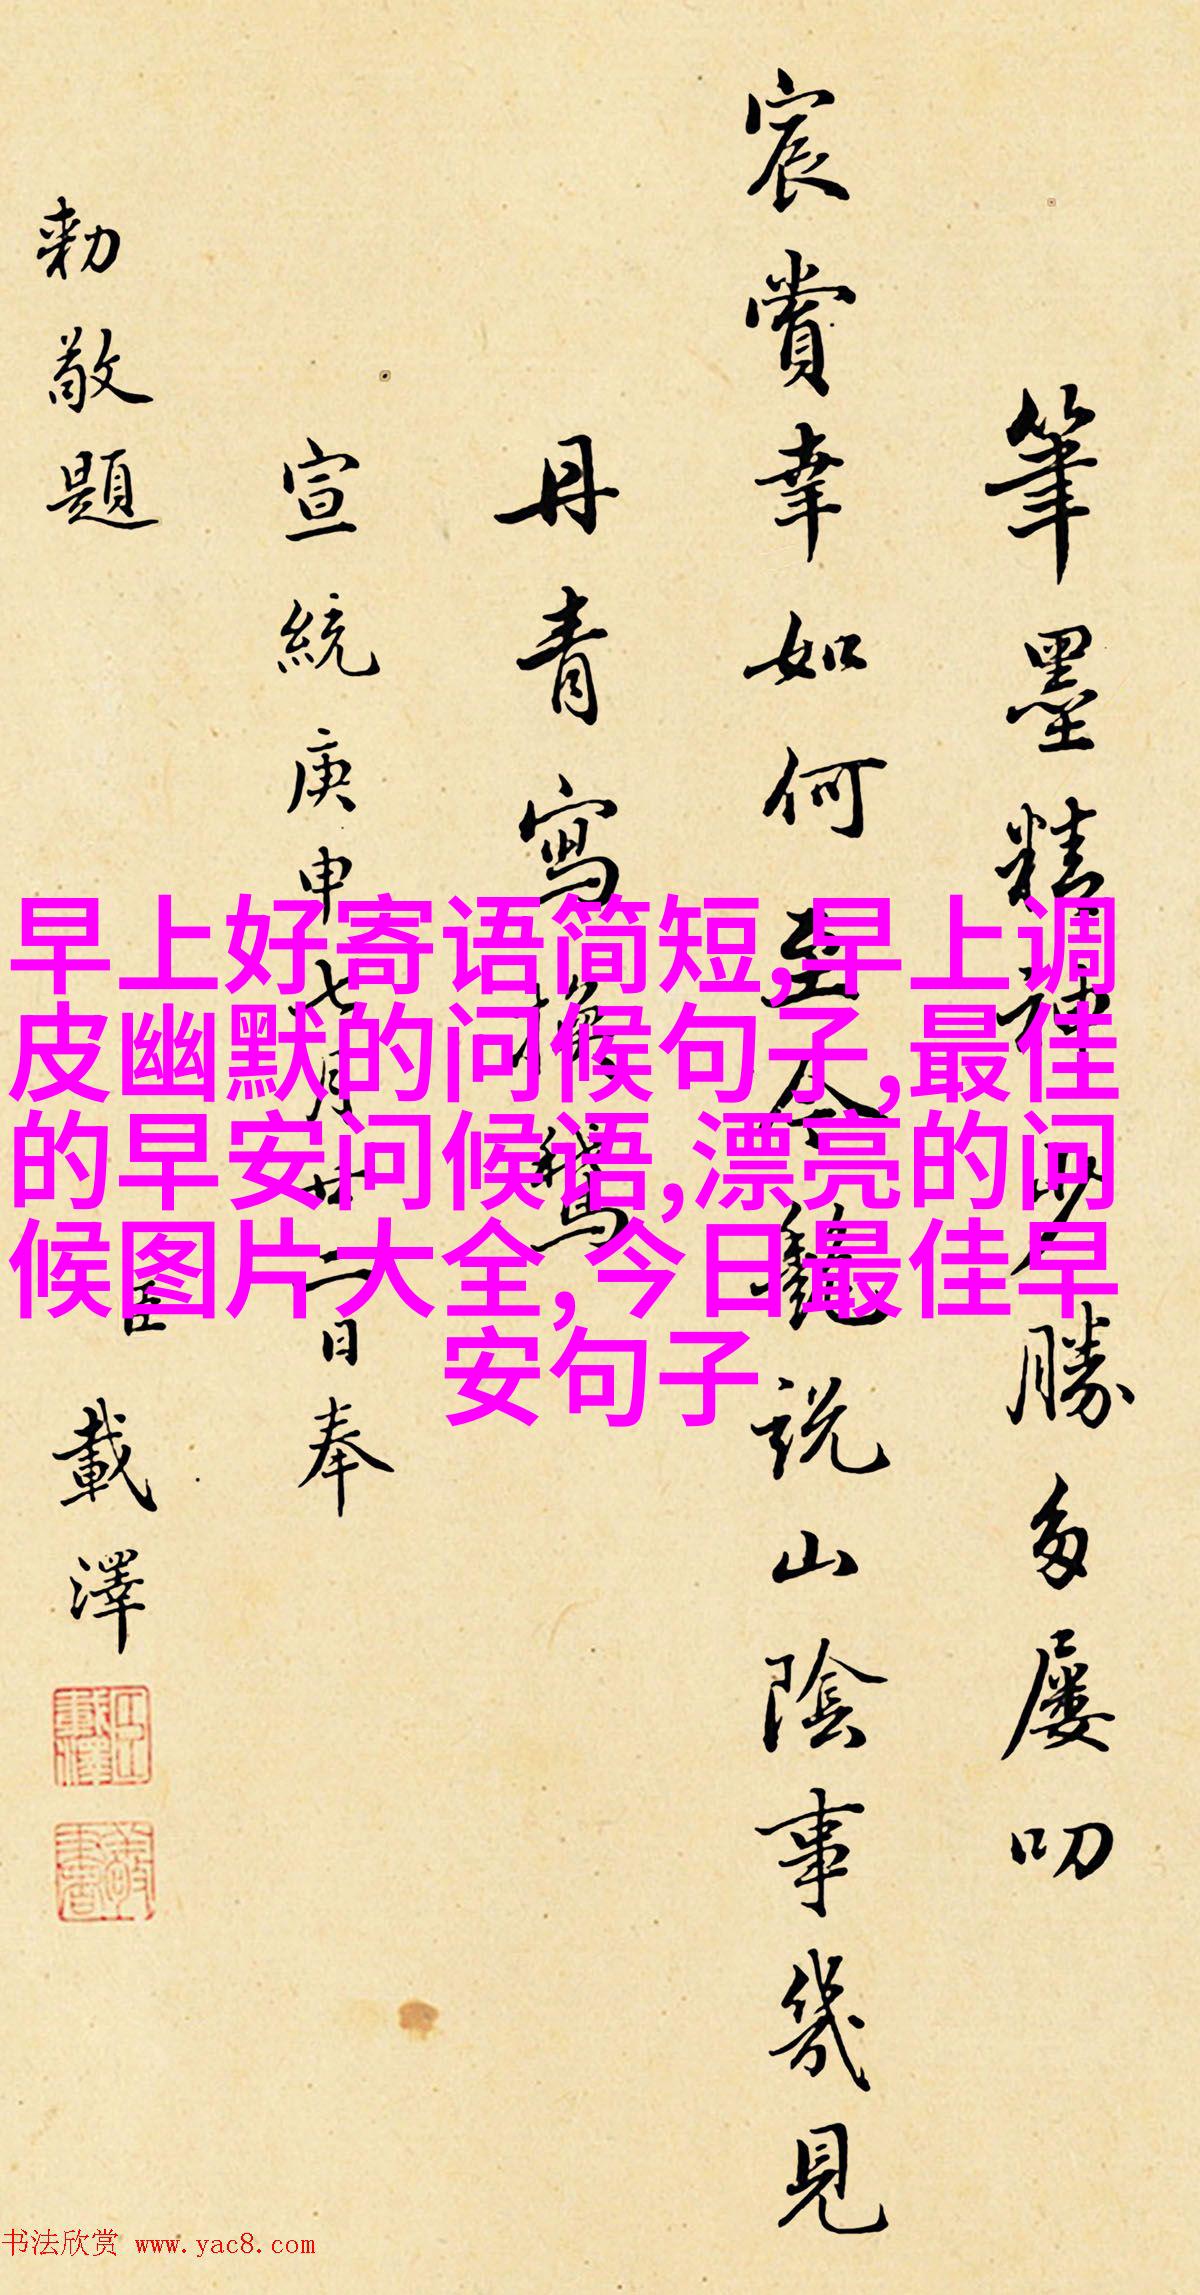 筆墨精神此勝多屢叨
宸賞幸如何至今艷說山陰事幾見
丹青寫換鵞
宣統庚申七月廿二日奉
勅敬題
臣載澤
早上好寄语简短,早上调
皮幽默的问候句子,最佳
的早安问候语,漂亮的问
候图片大全,今日最佳早
安句子
书法欣赏 www.yac8.com